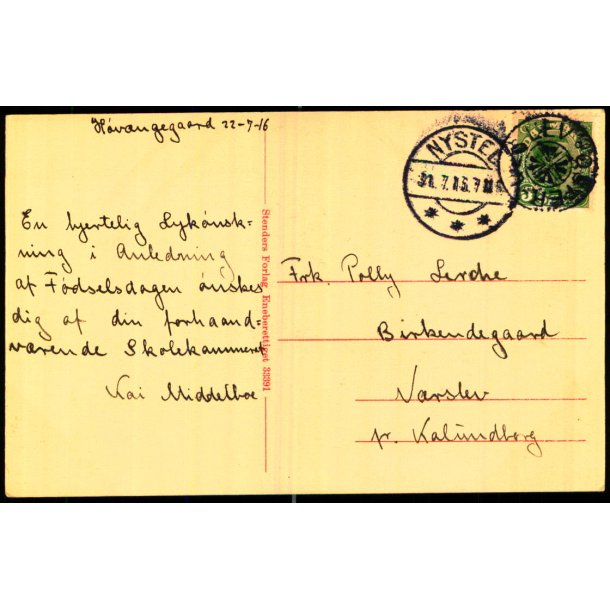 Høvængegaard 22-7-16
NYSTED
5
En hjertelig Lykønsk-
ning i Anledning
af Fødselsdagen ønskes
dig af din forhaand=
værende Skolekammerat
Kai Middelboe
Stenders Forlag Eneberettiget 33291
Frk. Polly Lerche
Birkendegaard
Værslev
pr. Kalundborg